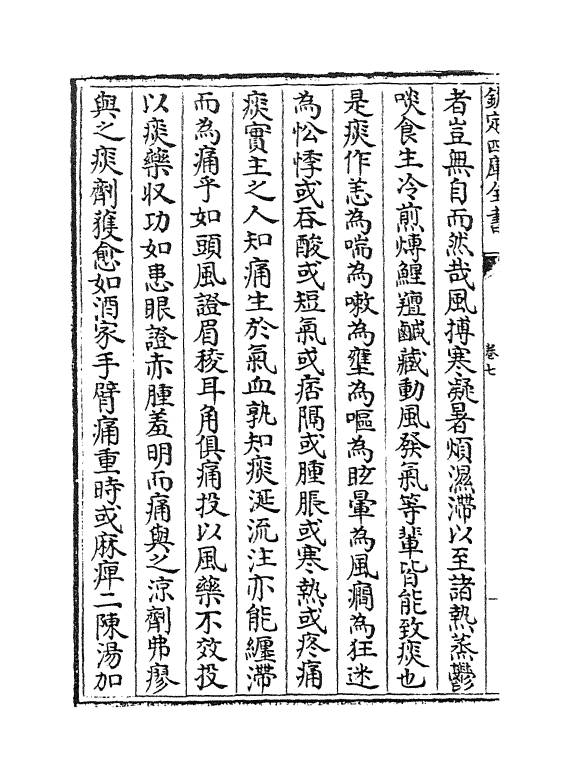 欽定四庫全書
卷七
者豈無自而然哉風搏寒凝暑煩濕滯以至諸熱蒸鬱
啖食生冷煎煿鯹羶鹹藏動風發氣等輩皆能致痰也
是痰作恙為喘為嗽為壅為嘔為眩暈為風癎為狂迷
為忪悸或吞酸或短氣或痞隔或腫脹或寒熱或疼痛
痰實主之人知痛生於氣血孰知痰涎流注亦能纏滯
而為痛乎如頭風證眉稜耳角俱痛投以風藥不效投
以痰藥収功如患眼證赤腫羞明而痛與之涼劑弗瘳
與之痰劑獲愈如酒家手臂痛重時或麻痺二陳湯加